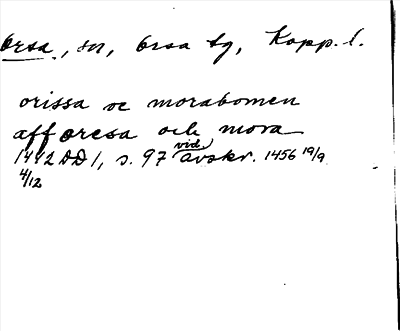 Orsa, sn, Orsa tg, Kopp. l.
orissa oc morabomen
aff oresa och mora
1442 DD 1, s. 97 vid. avskr. 1456 19/9
4/12